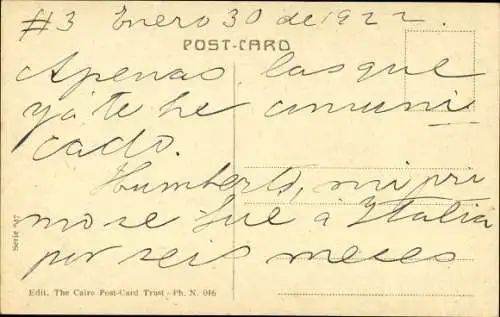 #3 Enero 30 de 1922.
POST-CARD
Apenas las que
ya te he comuni
cado.
Humberto, mi pri
mo se fue á Italia
por seis meses
Serie 547
Edit. The Cairo Post-Card Trust - Ph. N. 046